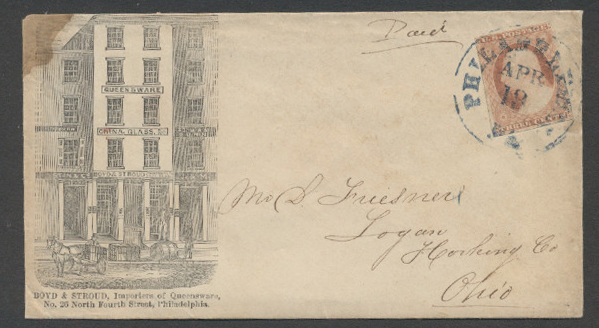 Paid
U.S. POSTAGE
PHILADELPHIA
APR
18
THREE CENTS
QUEENSWARE
CHINA, GLASS, &c
BOYD & STROUD
BOYD & STROUD, Importers of Queensware,
No. 26 North Fourth Street, Philadelphia.
Mr D Friesner
Logan
Hocking Co
Ohio